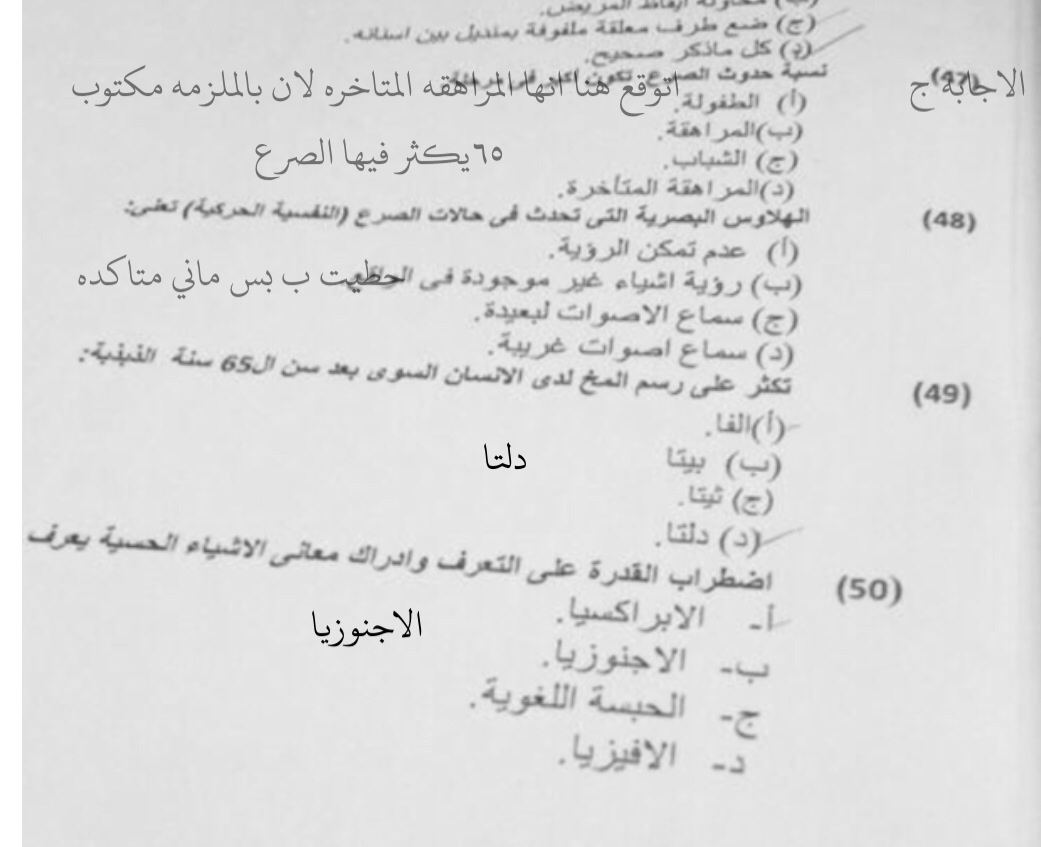 (ب) محاولة ايقاظ المريض.
(ج) ضع طرف معلقة ملفوفة بمنديل بين اسنانه.
(د) كل ماذكر صحيح.
(47) نسبة حدوث الصرع تكون اكثر
الاجابة ج
اتوقع هنا انها المراهقه المتاخره لان بالملزمه مكتوب
(أ) الطفولة.
(ب)المراهقة.
٦٥يكثر فيها الصرع
(ج) الشباب.
(د)المراهقة المتأخرة.
(48) الهلاوس البصرية التى تحدث فى حالات الصرع (النفسية الحركية) تعنى:
(أ) عدم تمكن الرؤية.
(ب) رؤية اشياء غير موجودة فى
حطيت ب بس ماني متاكده
(ج) سماع الاصوات لبعيدة.
(د) سماع اصوات غريبة.
(49) تكثر على رسم المخ لدى الانسان السوى بعد سن ال65 سنة الذبذبة:
(أ)الفا.
(ب) بيتا
دلتا
(ج) ثيتا.
(د) دلتا.
(50) اضطراب القدرة على التعرف وادراك معانى الاشياء الحسية يعرف
أ- الابراكسيا.
الاجنوزيا
ب- الاجنوزيا.
ج- الحبسة اللغوية.
د- الافيزيا.